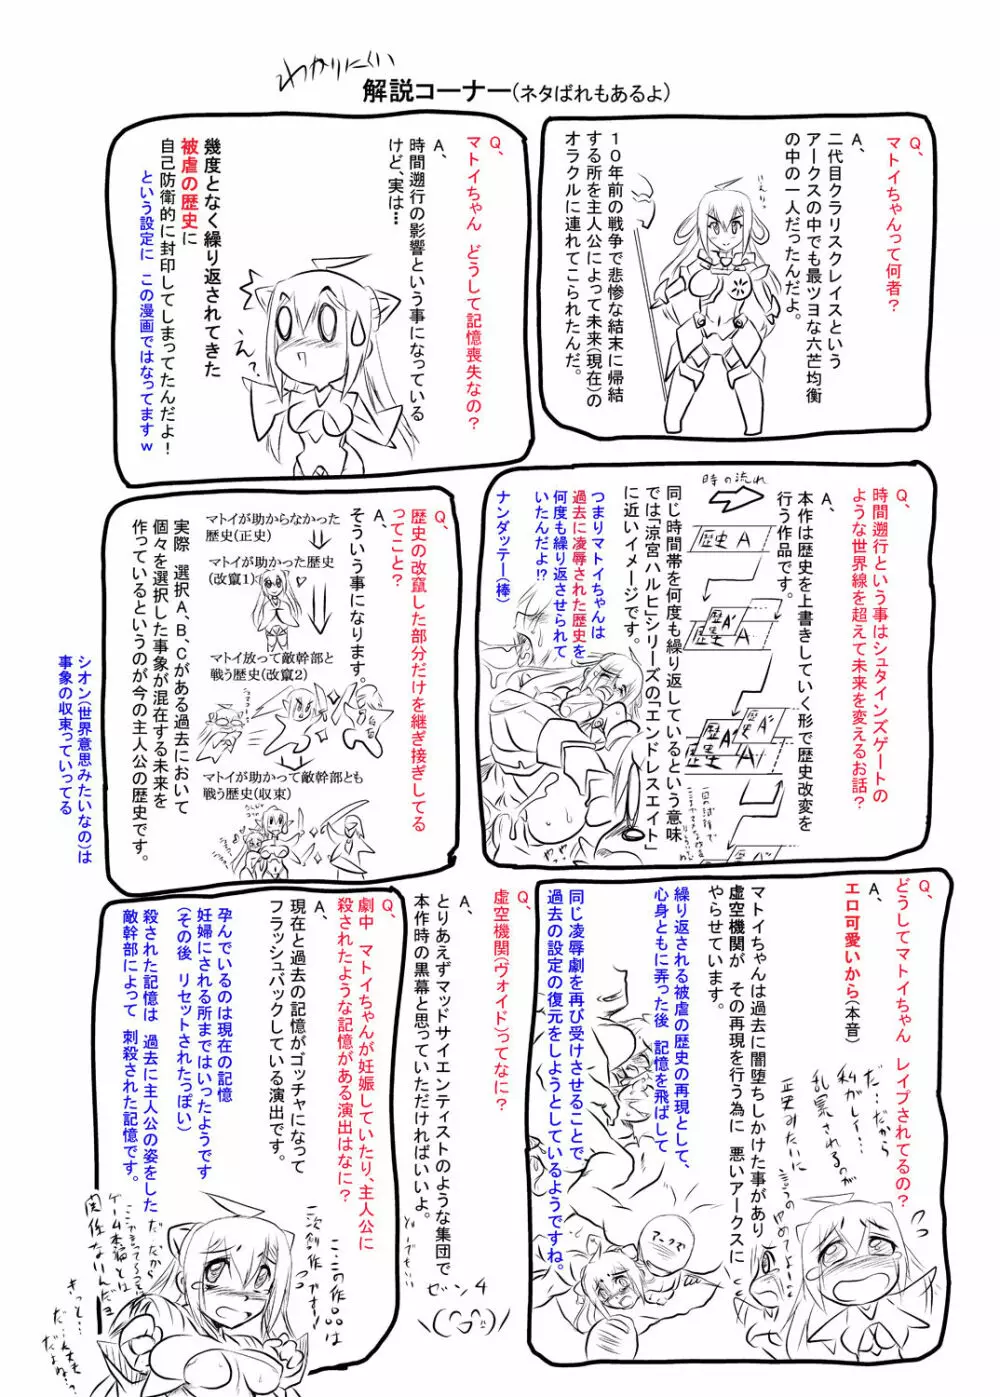 わかりにくい
解説コーナー(ネタばれもあるよ)
Q、
マトイちゃんって何者?
A、
二代目クラリスクレイスという
アークスの中でも最ツヨな六芒均衡
の中の一人だったんだよ。
10年前の戦争で悲惨な結末に帰結
する所を主人公によって未来(現在)の
オラクルに連れてこられたんだ。
Q、
マトイちゃん どうして記憶喪失なの?
A、
時間遡行の影響という事になっている
けど、実は…
幾度となく繰り返されてきた
被虐の歴史に
自己防衛的に封印してしまってたんだよ!
という設定に この漫画ではなってますw
え?
Q、
時間遡行という事はシュタインズゲートの
ような世界線を超えて未来を変えるお話?
A、
本作は歴史を上書きしていく形で歴史改変を
行う作品です。
時の流れ
歴史 A
歴史 A'
同じ時間帯を何度も繰り返しているという意味
では「涼宮ハルヒ」シリーズの「エンドレスエイト」
に近いイメージです。
つまりマトイちゃんは
過去に凌辱された歴史を
何度も繰り返させられて
いたんだよ!?
ナンダッテー(棒)
Q、
歴史の改竄した部分だけを継ぎ接ぎしてる
ってこと?
A、
そういう事になります。
マトイが助からなかった
歴史(正史)
マトイが助かった歴史
(改竄1)
マトイ放って敵幹部と
戦う歴史(改竄2)
マトイが助かって敵幹部とも
戦う歴史(収束)
実際 選択A、B、Cがある過去において
個々を選択した事象が混在する未来を
作っているというのが今の主人公の歴史です。
シオン(世界意思みたいなの)は
事象の収束っていってる
Q、
どうしてマトイちゃん レイプされてるの?
A、
エロ可愛いから(本音)
マトイちゃんは過去に闇堕ちしかけた事があり
虚空機関が その再現を行う為に 悪いアークスに
やらせています。
繰り返される被虐の歴史の再現として、
心身ともに弄った後 記憶を飛ばして
同じ凌辱劇を再び受けさせることで
過去の設定の復元をしようとしているようですね。
だ…だから
私がレイ…
乱暴されるのが
正史みたいに
言うのやめてよ
Q、
虚空機関(ヴォイド)ってなに?
A、
とりあえずマッドサイエンティストのような集団で
本作時の黒幕と思っていただければいいよ。
Q、
劇中 マトイちゃんが妊娠していたり、主人公に
殺されたような記憶がある演出はなに?
A、
現在と過去の記憶がゴッチャになって
フラッシュバックしている演出です。
孕んでいるのは現在の記憶
妊婦にされる所まではいったようです
(その後 リセットされたっぽい)
殺された記憶は 過去に主人公の姿をした
敵幹部によって 刺殺された記憶です。
だ だから
ゲーム本編とは
関係ないんだよ
きっと…